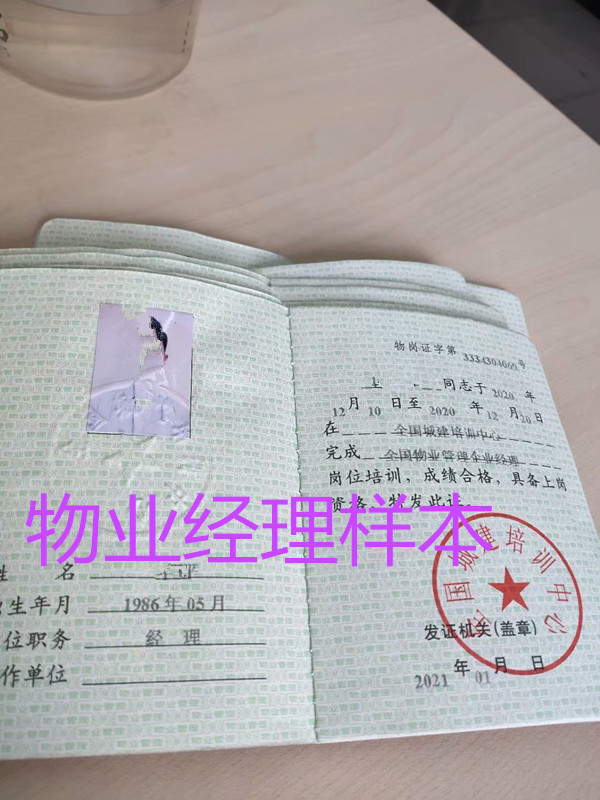 物岗证字第 3334304069号
同志于 2020 年
12月 10 日至 2020 年 12 月 20日
在 全国城建培训中心
完成 全国物业管理企业经理
岗位培训，成绩合格，具备上岗
资格，特发此证。
全国城建培训中心
发证机关(盖章)
2021 年 01 月 日
物业经理样本
姓 名
出生年月 1986年05月
位职务 经 理
作单位